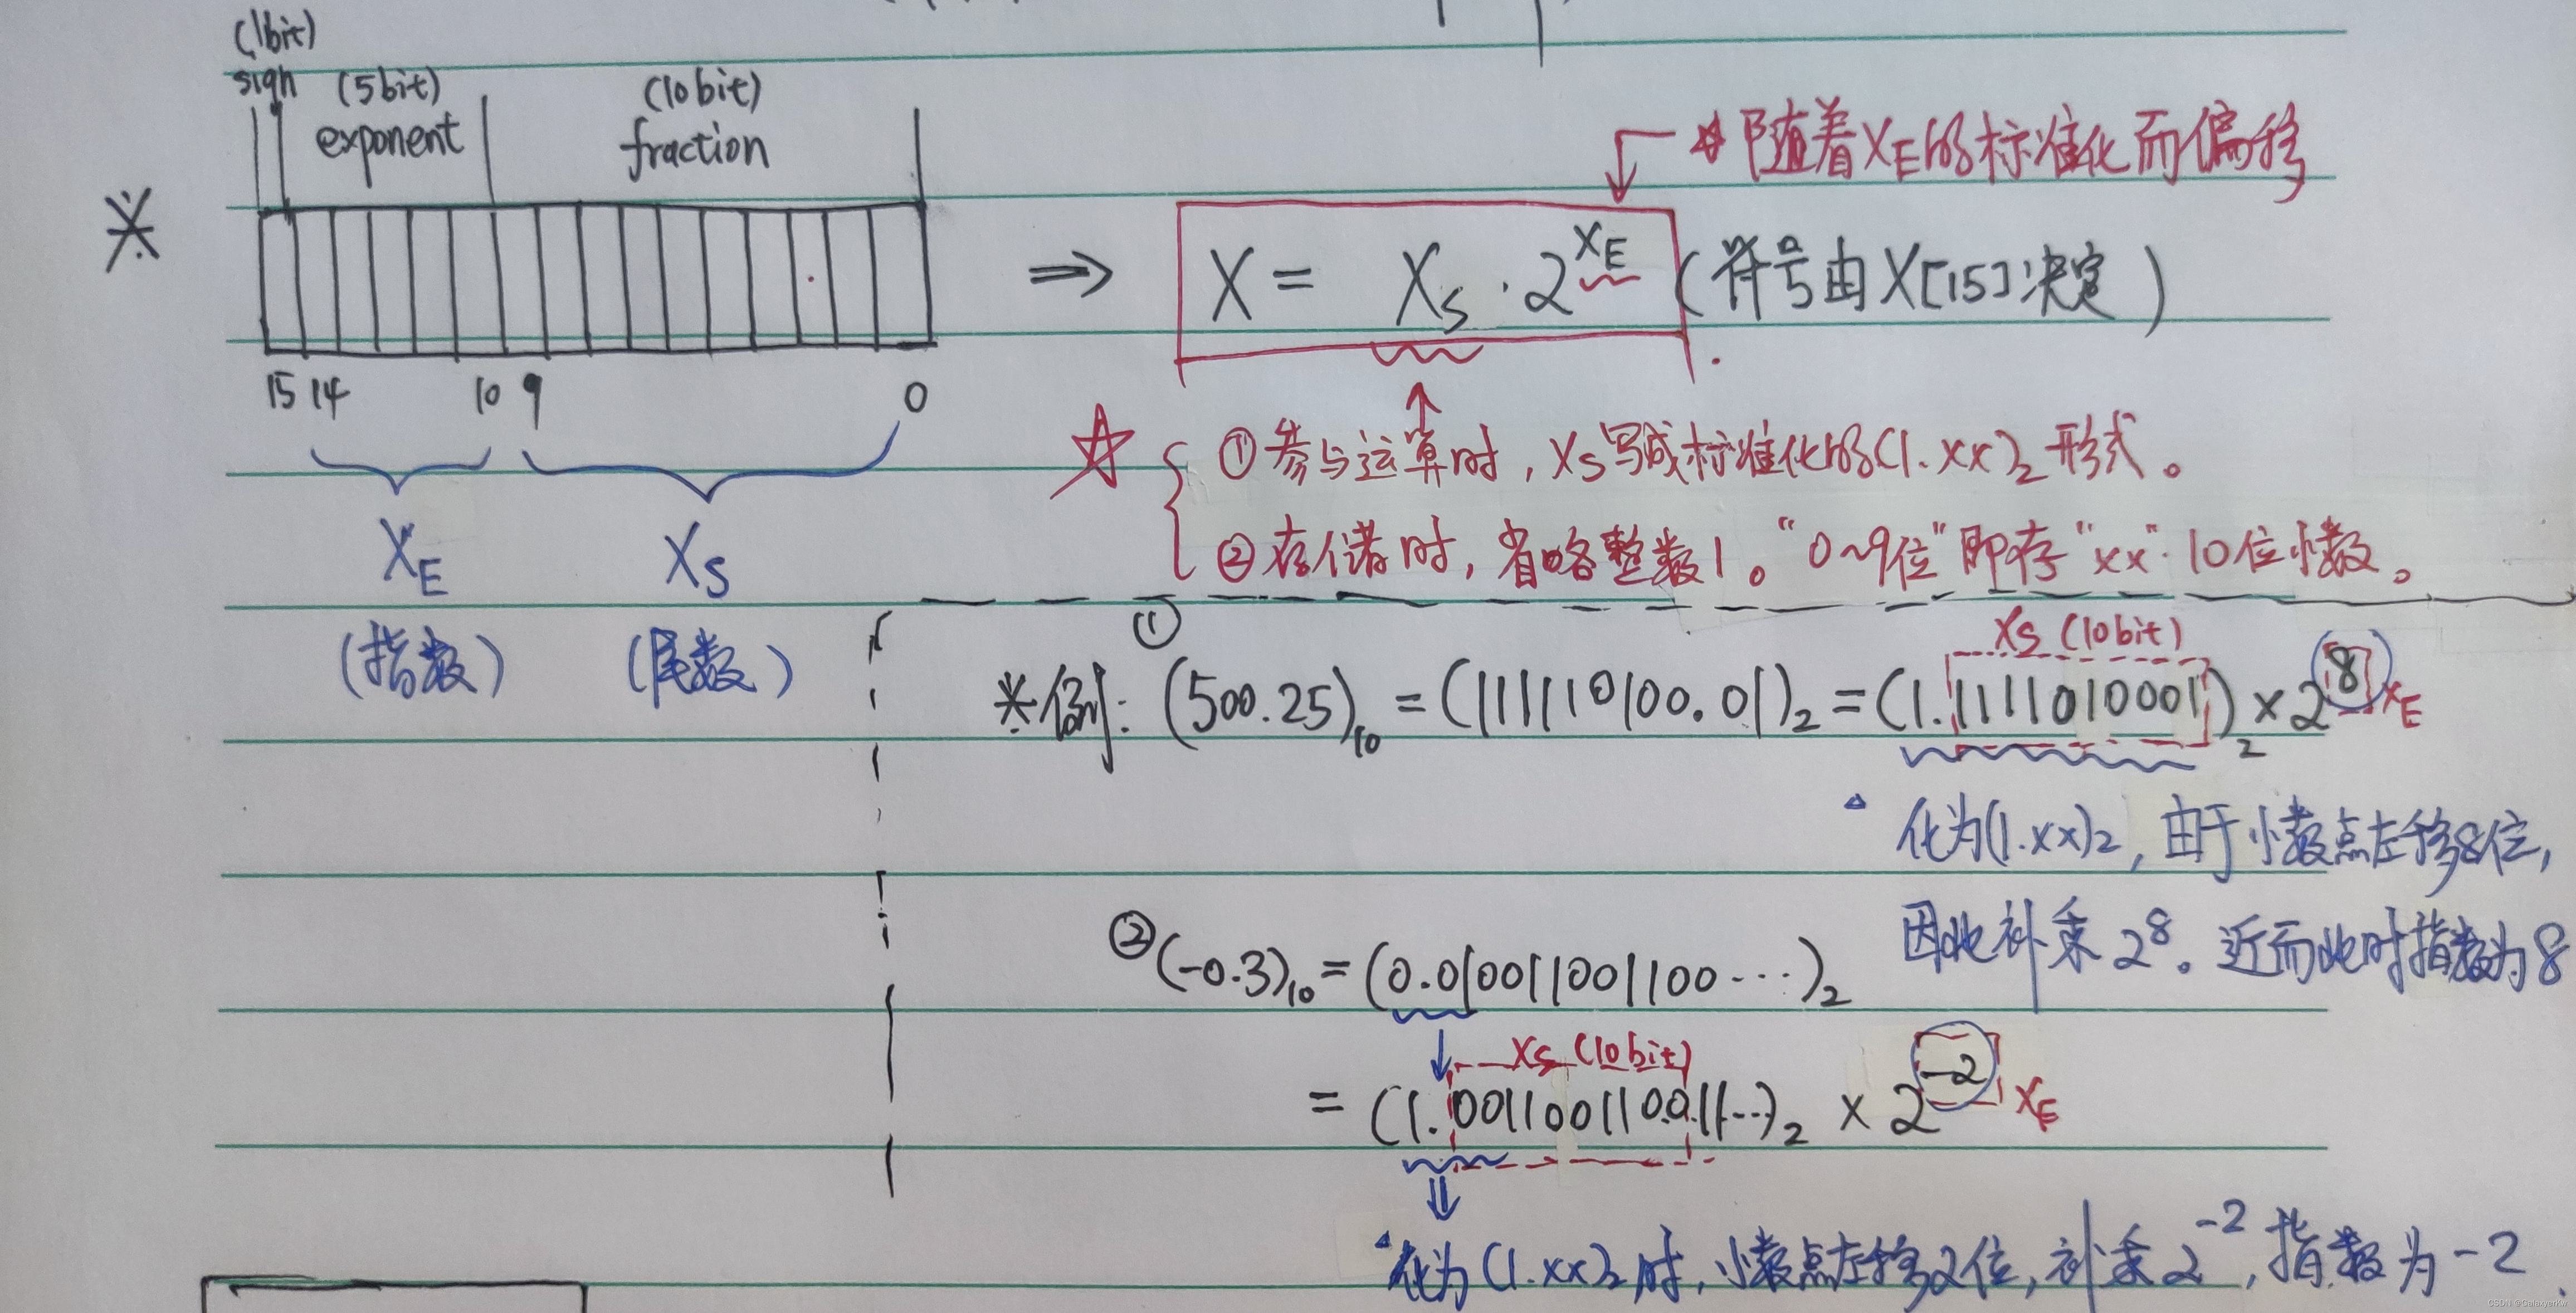 (1bit)
sign (5bit) (10bit)
exponent fraction
☆随着XE的标准化而偏移
※ ⇒ X = XS · 2^XE (符号由X[15]决定)
15 14 10 9 0
☆ ①参与运算时,XS写成标准化的(1.xx)2形式。
②存储时,省略整数1。"0~9位"即存"xx"10位小数。
XE XS
(指数) (尾数)
XS (10bit)
※例: ① (500.25)10 = (111110100.01)2 = (1.1111010001)2 × 2^8 XE
△ 化为(1.xx)2,由于小数点左移8位,
因此补乘2^8。近而此时指数为8
② (-0.3)10 = (0.010011001100···)2
XS (10bit)
= (1.001100110011···)2 × 2^-2 XE
△化为(1.xx)2时,小数点左移2位,补乘2^-2,指数为-2
CSDN @Gmaxyerker